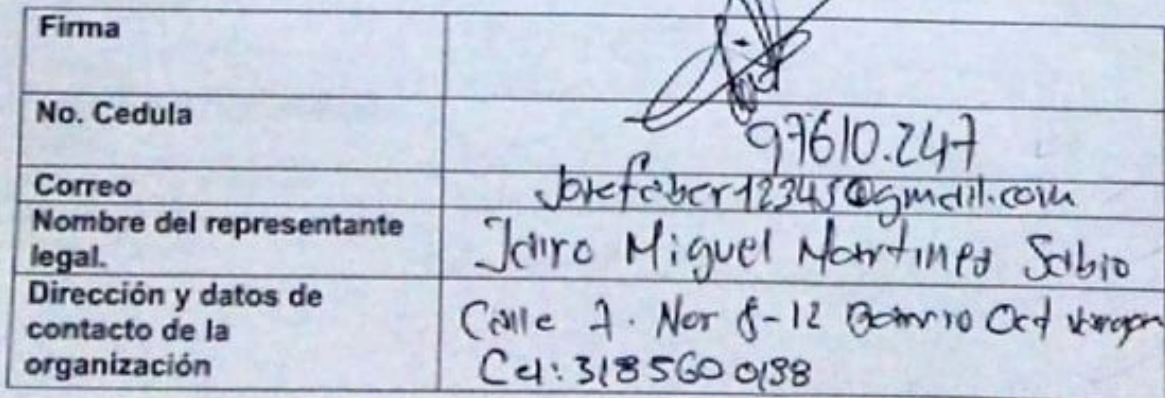 Firma
No. Cedula 97610.247
Correo Josefaber12345@gmail.com
Nombre del representante
legal. Jairo Miguel Martinez Sabio
Dirección y datos de
contacto de la
organización
Calle 7. Nor 8-12 Barrio
Cel: 318560 0198